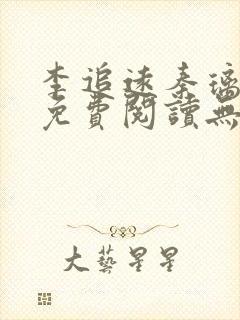 李追遠秦璃
免費閱讀無
大藝星星